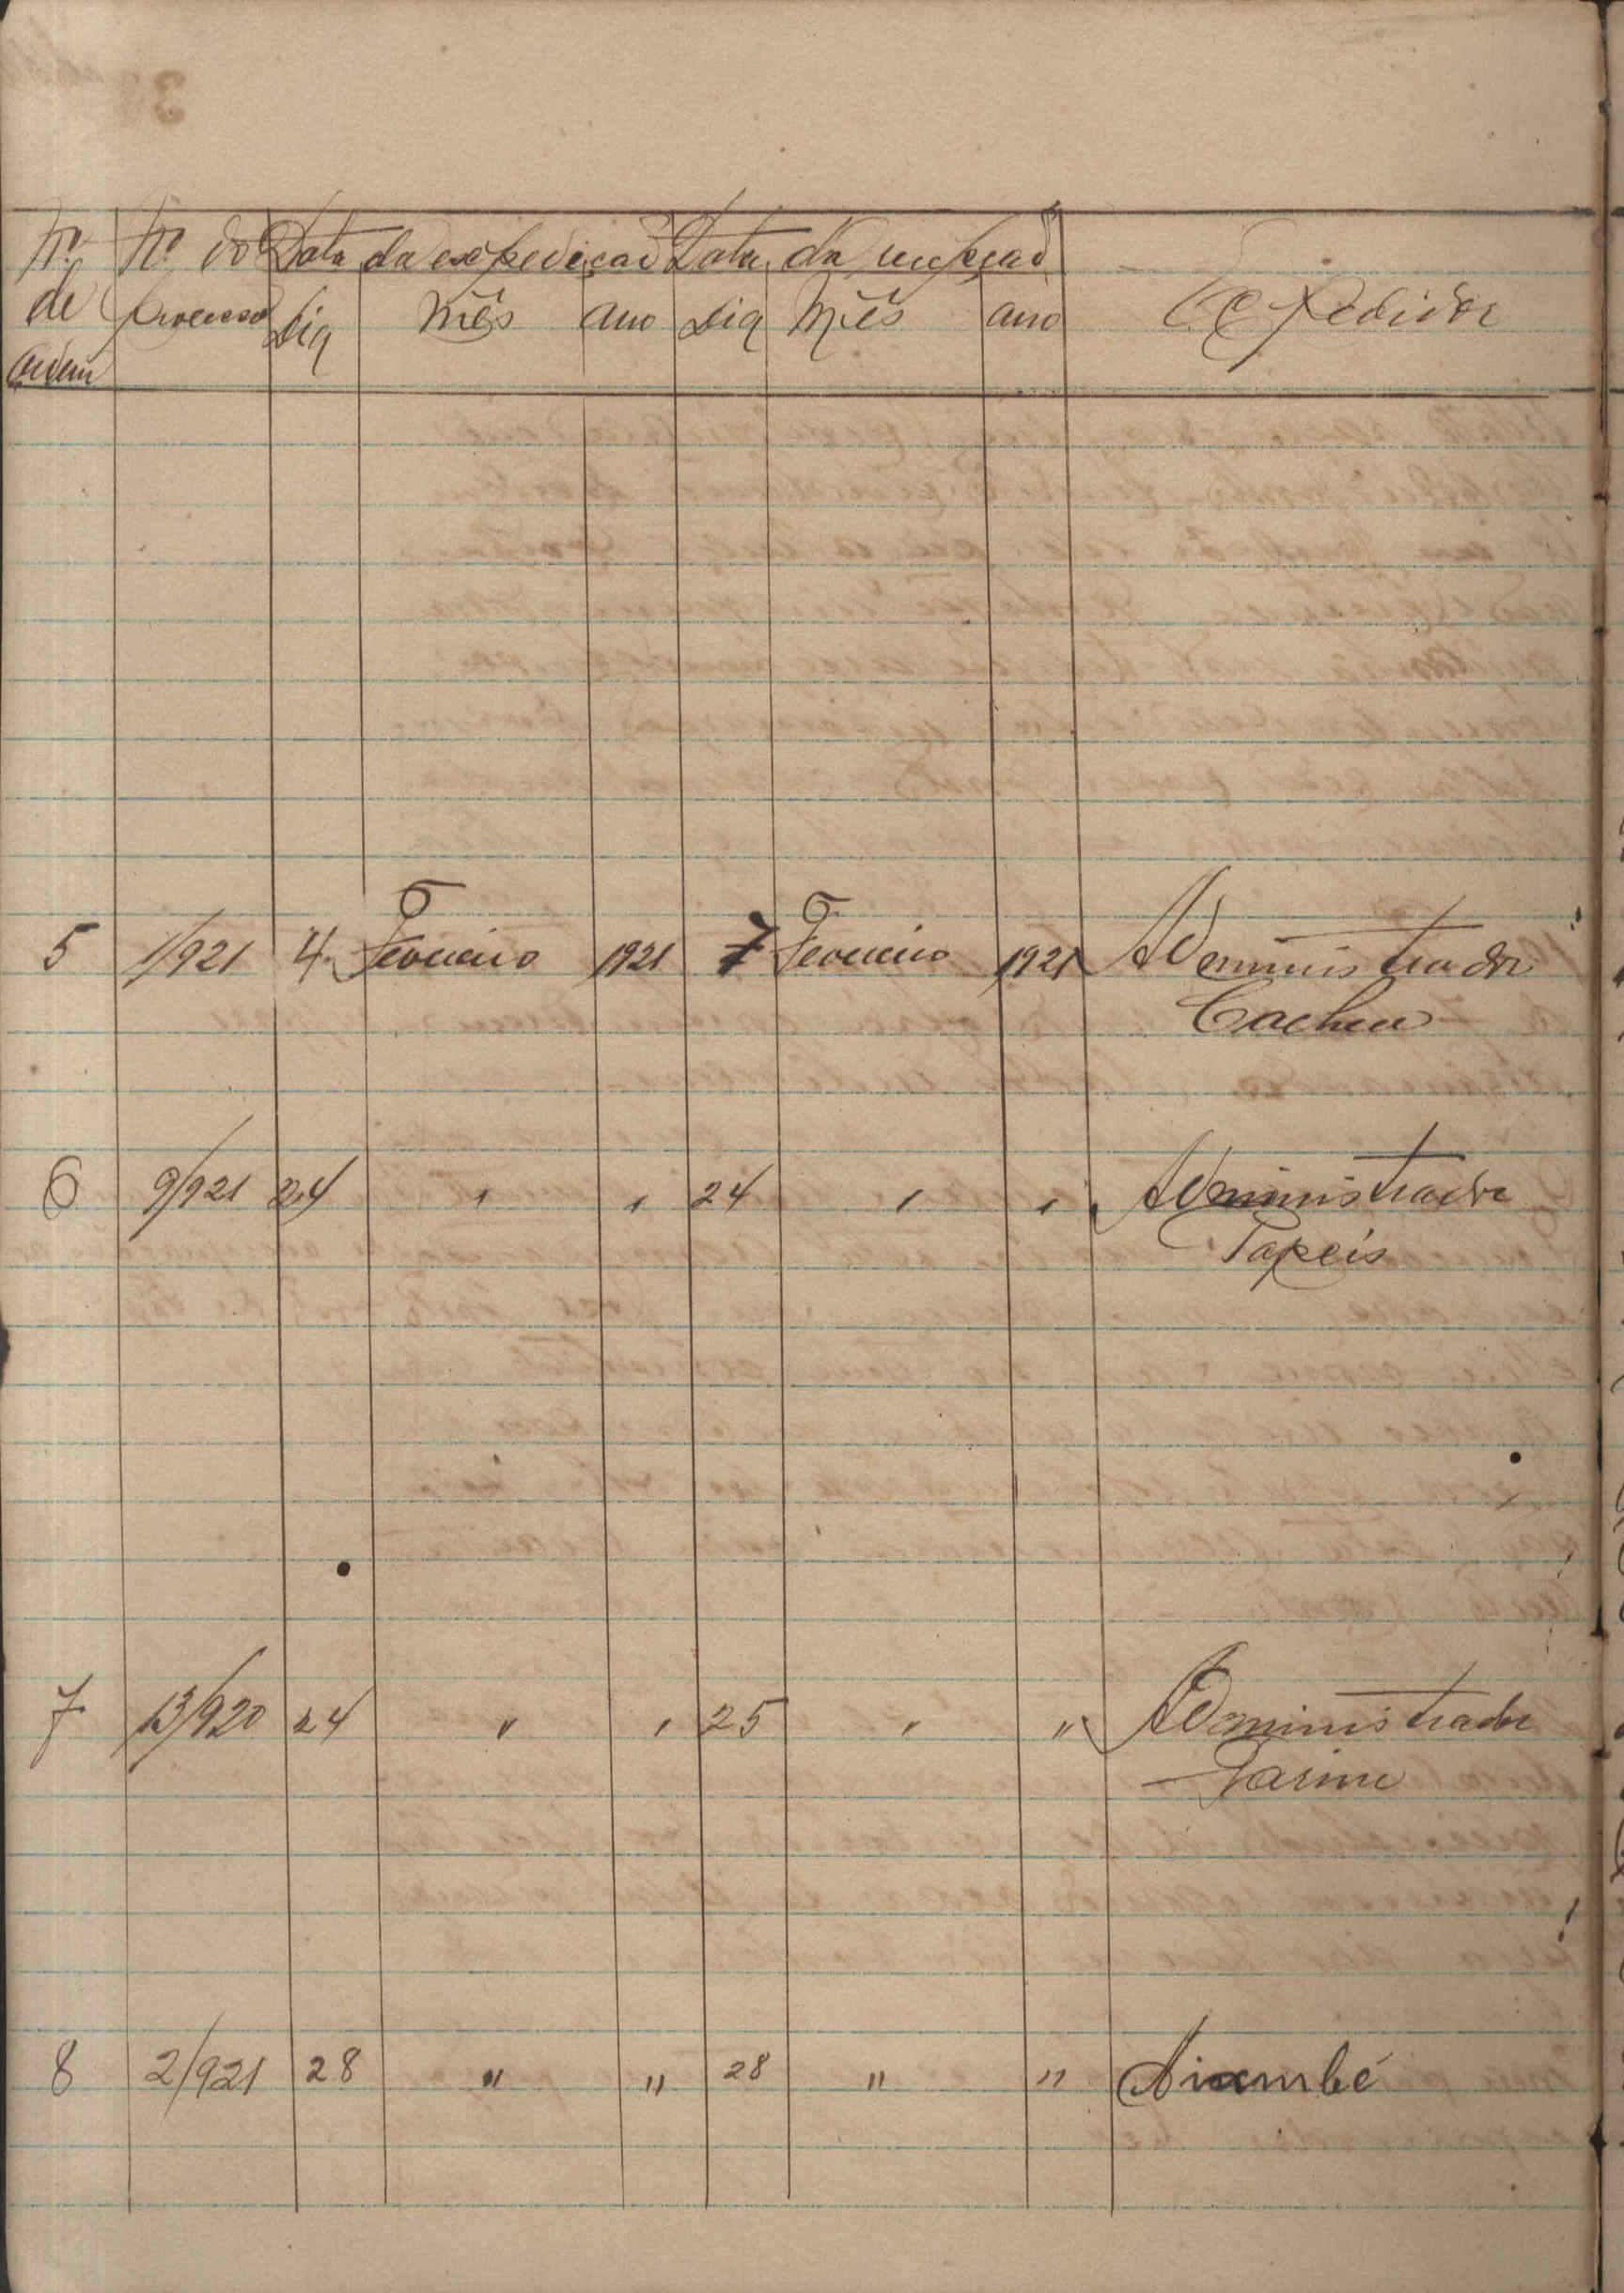 Nº Nº do Data da expedição Data da recepção
de Processo Dia Mês ano Dia Mês ano Expedidor
ordem
5 1/921 4 Fevereiro 1921 7 Fevereiro 1921 Administrador
Cacheu
6 9/921 24 " " 24 " " Administrador
Papeis
7 13/920 24 " " 25 " " Administrador
Farim
8 2/921 28 " " 28 " "